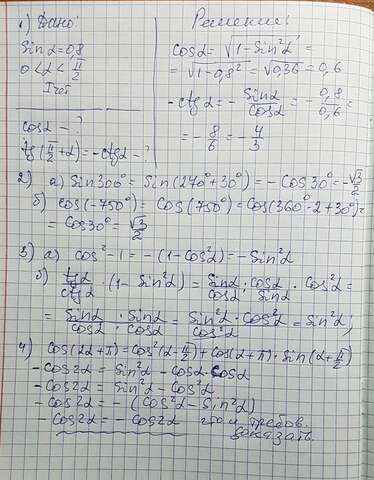 1) Дано:
Sin α = 0,8
0 < α < π/2
I чет
cos α - ?
tg(π/2 + α) = -ctg α - ?
Решение:
cos α = √(1 - Sin²α) =
= √(1 - 0,8²) = √0,36 = 0,6
- ctg α = - Sin α/Cos α = - 0,8/0,6 =
= - 8/6 = - 4/3
2) а) Sin 300° = Sin(270° + 30°) = - Cos 30° = - √3/2
б) cos(-750°) = Cos(750°) = Cos(360°·2 + 30°) =
= Cos 30° = √3/2
3) а) cos² - 1 = - (1 - Cos²α) = - Sin²α
б) tg α/ctg α · (1 - Sin²α) = Sin α/Cos α · Cos α/Sin α · Cos²α =
= Sin α/Cos α · Sin α/Cos α = Sin²α · Cos²α/Cos²α = Sin²α;
4) Cos(2α + π) = Cos²(α - π/2) + Cos(α + π) · Sin(α + π/2)
- Cos 2α = Sin²α - Cos α · Cos α
- Cos 2α = Sin²α - Cos²α
- Cos 2α = - (Cos²α - Sin²α)
- Cos 2α = - Cos 2α что и требов.
доказать.